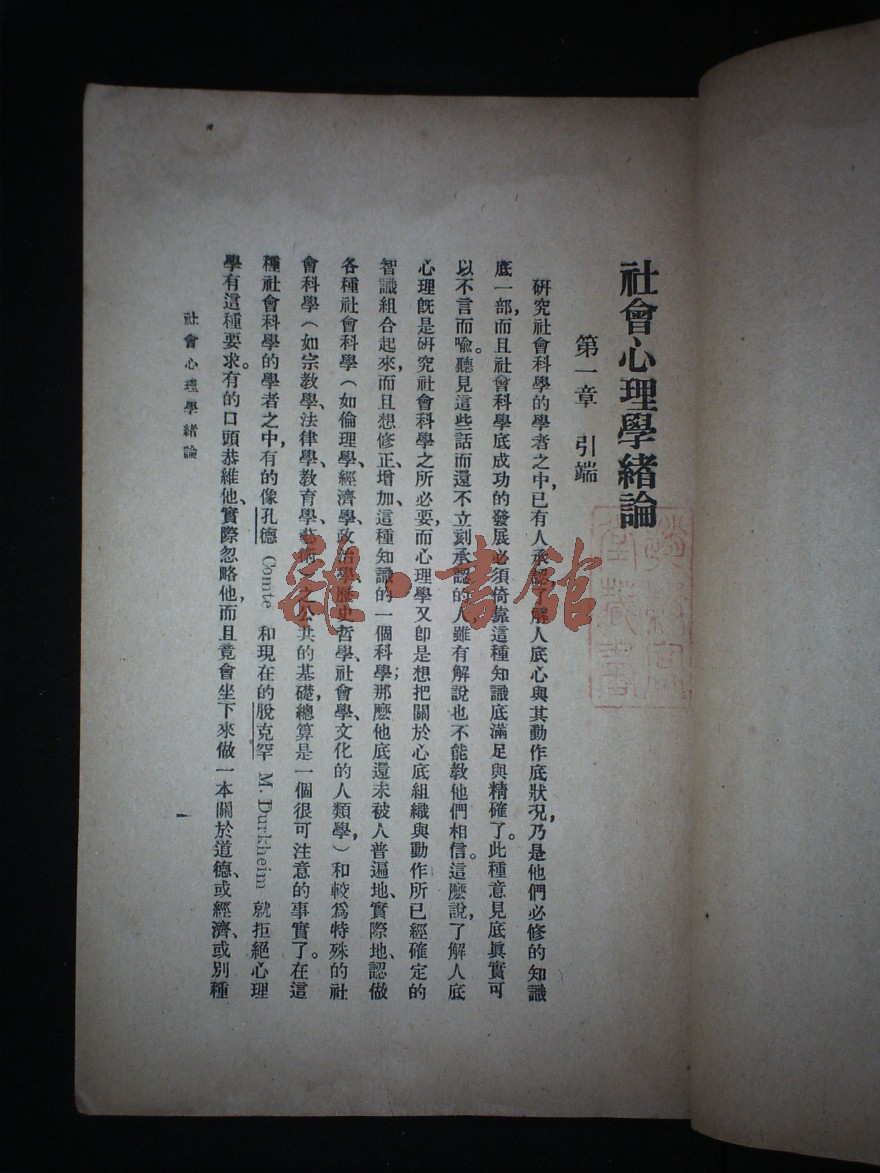 社會心理學緒論
第一章 引端
研究社會科學的學者之中,已有人承認了解人底心與其動作底狀況,乃是他們必修的知識
底一部,而且社會科學底成功的發展必須倚靠這種知識底滿足與精確了。此種意見底眞實可
以不言而喩。聽見這些話而還不立刻承認的人,雖有解說也不能教他們相信。這麼說,了解人底
心理旣是研究社會科學之所必要,而心理學又卽是想把關於心底組織與動作所已經確定的
智識組合起來,而且想修正、增加、這種知識的一個科學;那麽他底還未被人普遍地、實際地、認做
各種社會科學(如倫理學、經濟學、政治學、歷史哲學、社會學、文化的人類學,)和較爲特殊的社
會科學(如宗教學、法律學、教育學、藝術)之公共的基礎,總算是一個很可注意的事實了。在這
種社會科學的學者之中,有的像孔德 Comte 和現在的脫克罕 M. Durkheim 就拒絕心理
學有這種要求。有的口頭恭維他、實際忽略他,而且竟會坐下來做一本關於道德、或經濟、或別種
社會心理學緒論
一
雜·書館